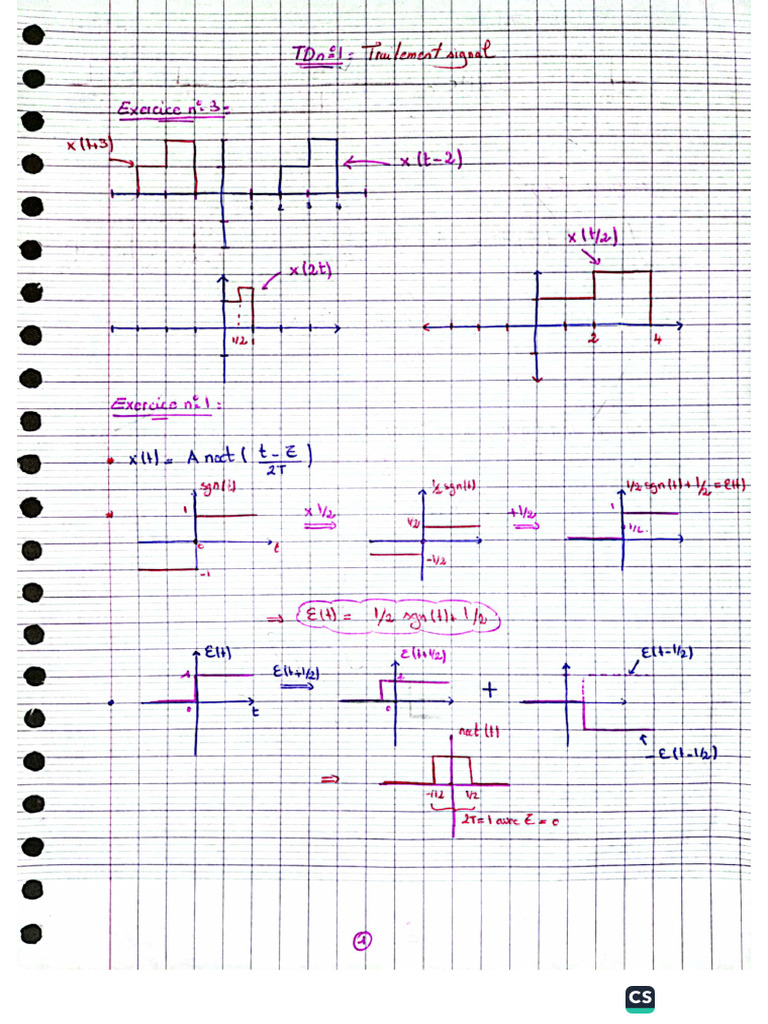 TDn°1: Traitement signal
Exercice n°3:
x(t+3)
x(t-2)
1 2 3 4
x(t/2)
x(2t)
1/2 1
2 4
Exercice n°1:
• x(t) = A rect( (t - Ɛ) / 2T )
sgn(t)
1/2 sgn(t)
1/2 sgn(t) + 1/2 = Ɛ(t)
1
x 1/2
⇒
1/2
+1/2
⇒
1
1/2
0
t
-1
-1/2
⇒ Ɛ(t) = 1/2 sgn(t) + 1/2
Ɛ(t)
Ɛ(t+1/2)
⇒
Ɛ(t+1/2)
+
Ɛ(t-1/2)
1
0
t
1
0
-Ɛ(t-1/2)
rect(t)
⇒
-1/2
1/2
2T=1 avec Ɛ=0
1
CS